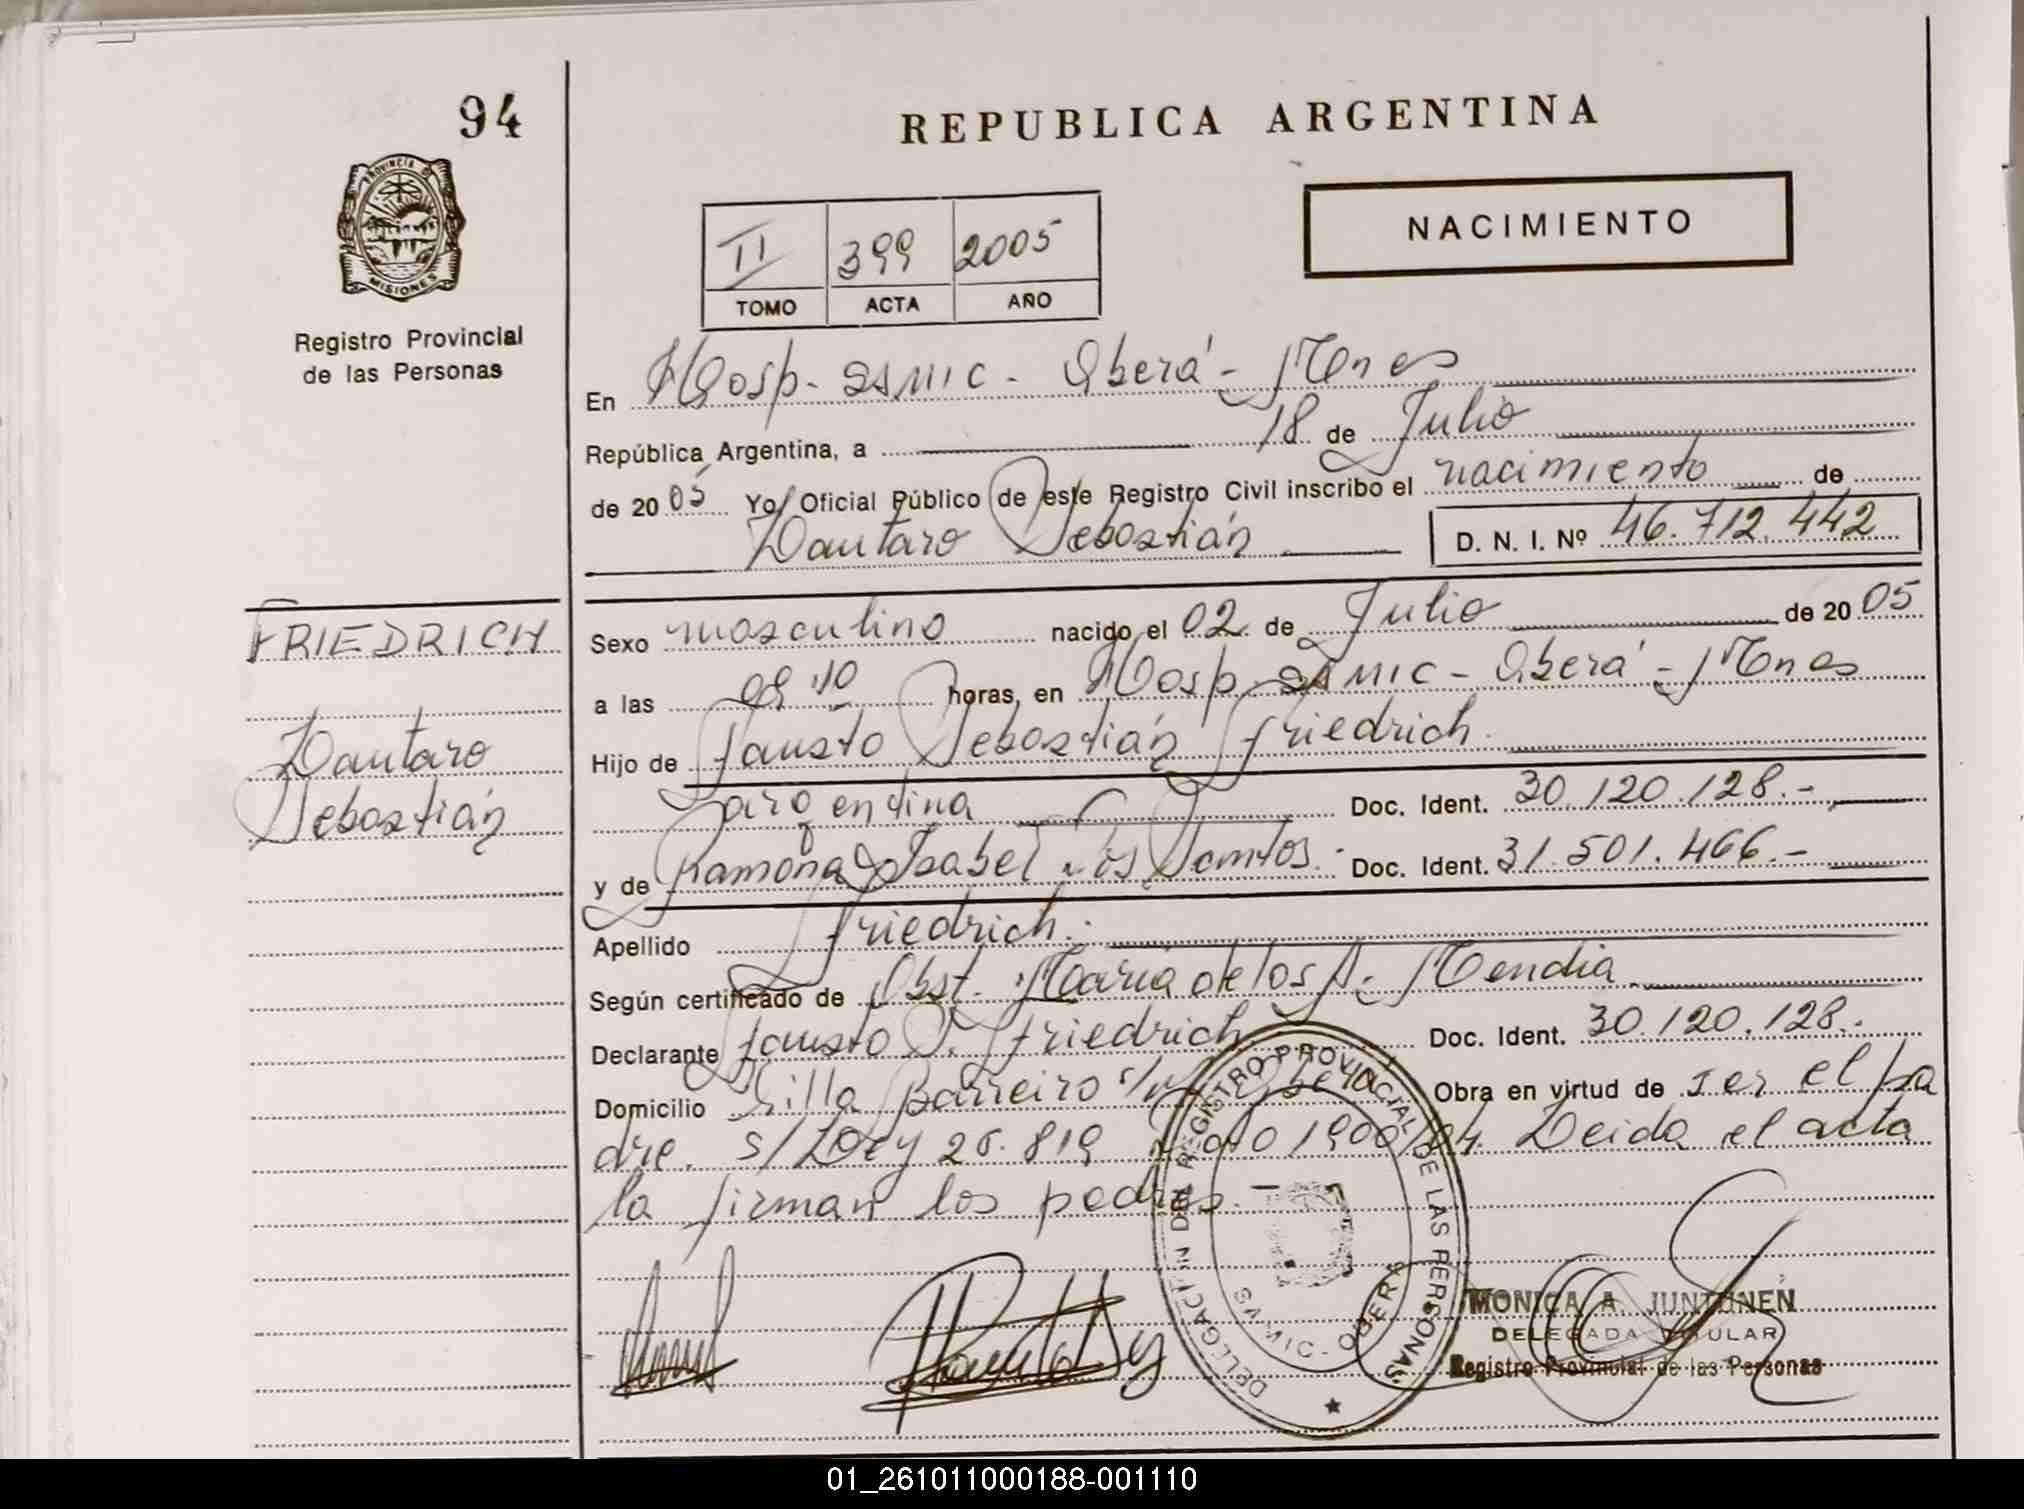 94
REPUBLICA ARGENTINA
PROVINCIA DE
MISIONES
Registro Provincial
de las Personas
NACIMIENTO
II 399 2005
TOMO ACTA AÑO
En Hosp. SAMIC - Oberá - Mnes
República Argentina, a 18 de Julio
de 2005 Yo Oficial Público de este Registro Civil inscribo el nacimiento de
Lautaro Sebastián D. N. I. Nº 46.712.442
FRIEDRICH
Lautaro
Sebastián
Sexo masculino nacido el 02 de Julio de 2005
a las 09:10 horas, en Hosp. SAMIC - Oberá - Mnes
Hijo de Fausto Sebastián Friedrich.
argentina Doc. Ident. 30.120.128.-
y de Ramona Isabel Dos Santos.- Doc. Ident. 31.501.466.-
Apellido Friedrich.-
Según certificado de Obst. María de los A. Mendia.
Declarante Fausto S. Friedrich Doc. Ident. 30.120.128.-
Domicilio Villa Barreiro s/nº Oberá Obra en virtud de ser el pa
dre. s/Ley 26.819 1900/04. Leida el acta
la firman los padres.
DELEGACION DEL REGISTRO PROVINCIAL DE LAS PERSONAS
OBERA
MONICA A. JUNTUNEN
DELEGADA TITULAR
Registro Provincial de las Personas
01_261011000188-001110